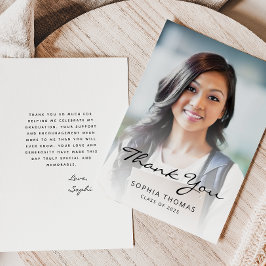 THANK YOU SO MUCH FOR
HELPING ME CELEBRATE MY
GRADUATION. YOUR SUPPORT
AND ENCOURAGEMENT MEAN
MORE TO ME THAN YOU WILL
EVER KNOW. YOUR LOVE AND
GENEROSITY HAVE MADE THIS
DAY TRULY SPECIAL AND
MEMORABLE.
Love,
Sophi
Thank You
SOPHIA THOMAS
CLASS OF 2025